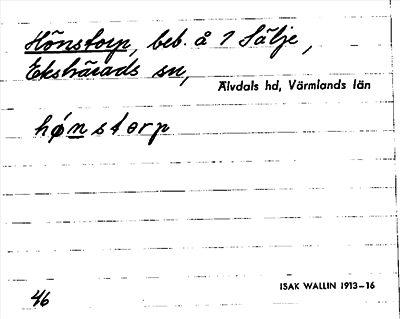 Hönstorp, beb. å 7 Sälje,
Ekshärads sn,
Älvdals hd, Värmlands län
hǿnstorp
46
ISAK WALLIN 1913–16